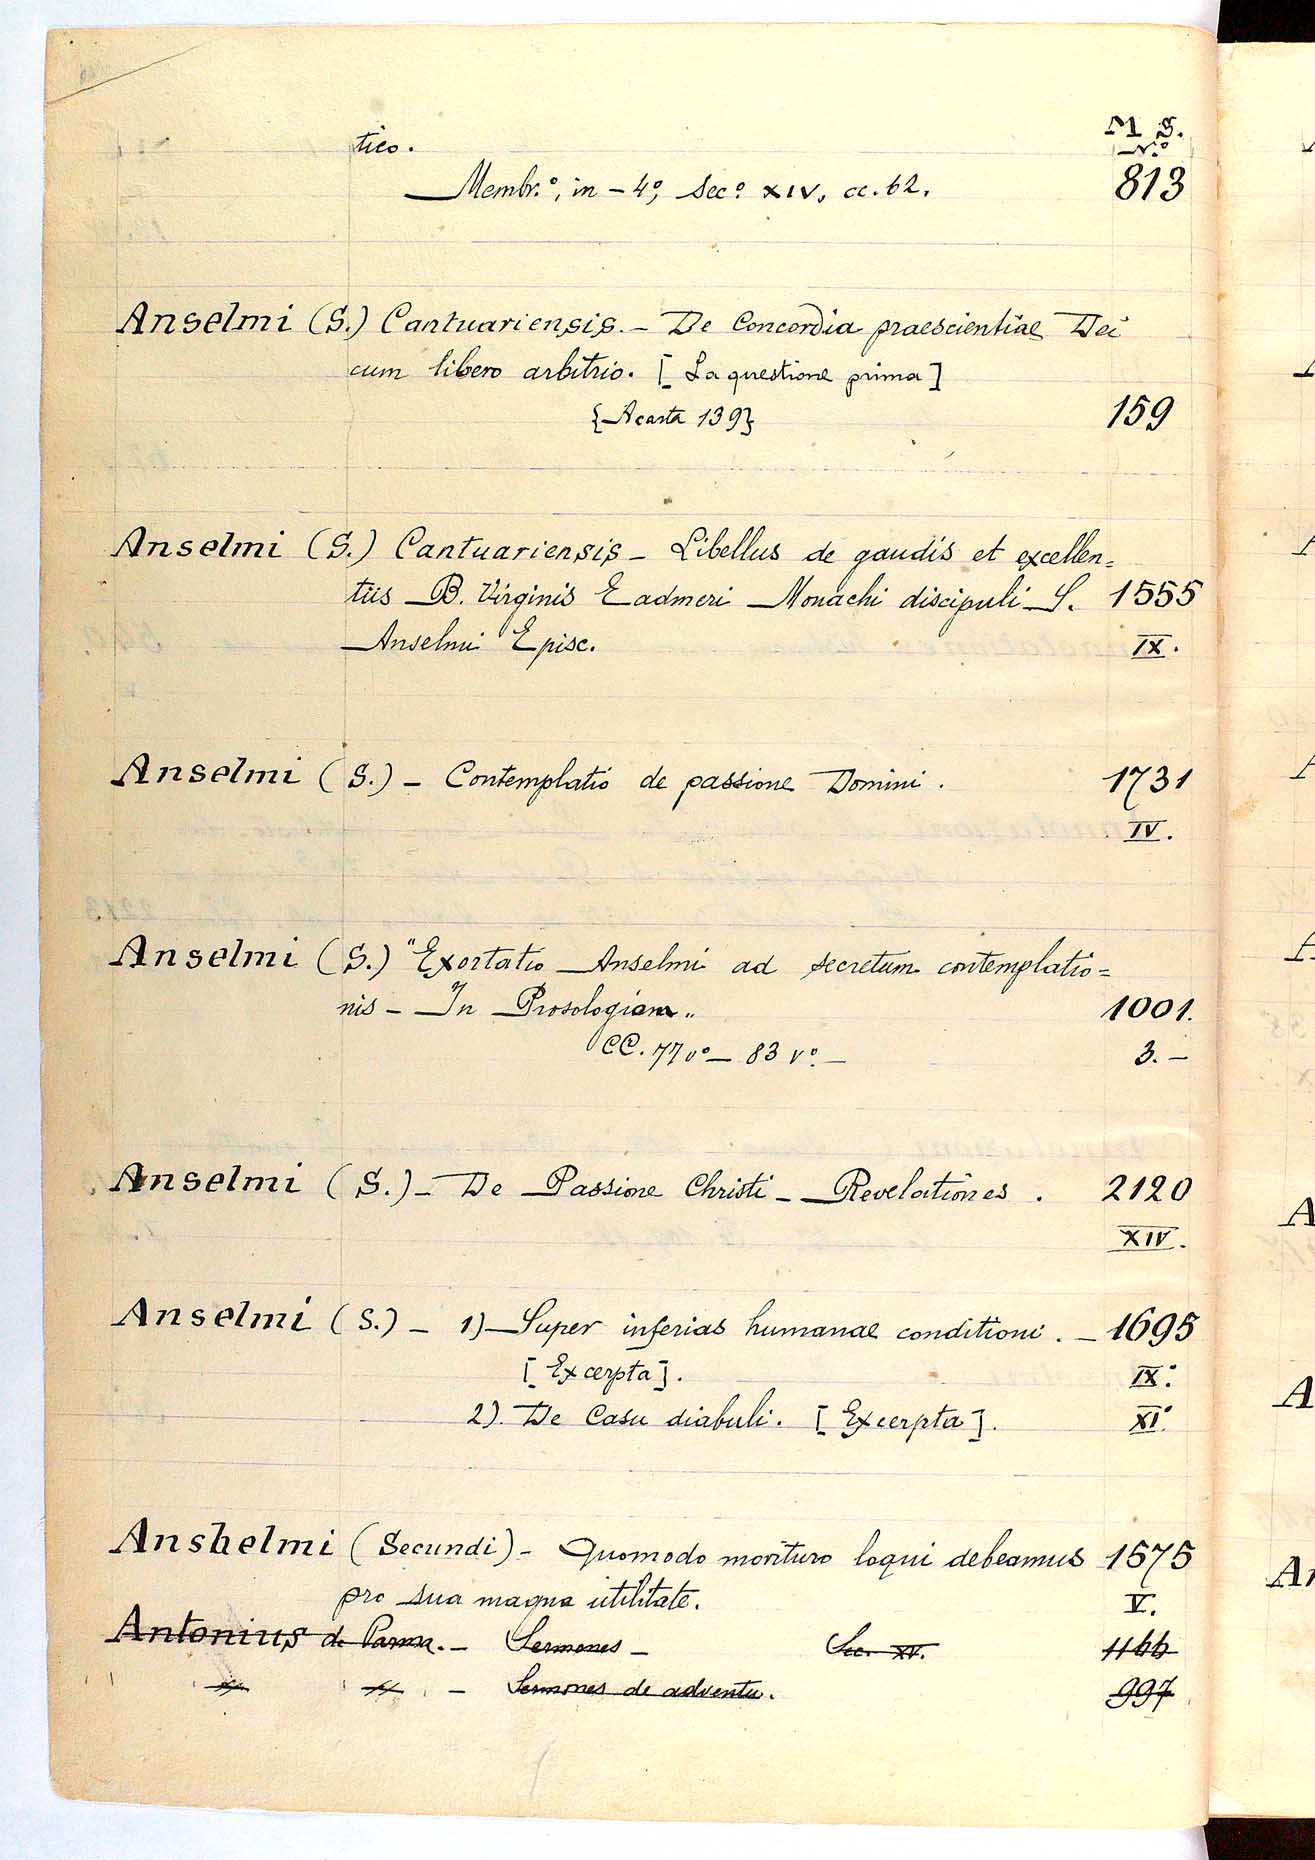 M S.
tico. N.o
Membr.o, in - 4o, Sec.o XIV, cc. 62. 813
Anselmi (S.) Cantuariensis. - De Concordia praescientiae Dei
cum libero arbitrio. [La questione prima]
{A carta 139} 159
Anselmi (S.) Cantuariensis - Libellus de gaudis et excellen=
tiis B. Virginis Eadmeri Monachi discipuli S. 1555
Anselmi Episc. IX.
Anselmi (S.) - Contemplatio de passione Domini. 1731
IV.
Anselmi (S.) "Exortatio Anselmi ad secretum contemplatio=
nis - In Prosologiam„ 1001.
CC. 77 vo - 83 vo. - 3. -
Anselmi (S.) - De Passione Christi - Revelationes. 2120
XIV.
Anselmi (S.) - 1) Super inferias humanae conditioni. - 1695
[Excerpta]. IX.o
2). De Casu diabuli. [Excerpta]. XI.o
Anshelmi (Secundi) - Quomodo morituro loqui debeamus 1575
pro sua magna utilitate. V.
Antonius de Parma. - Sermones - Sec. XV. 1166
" " - Sermones de adventu. 997